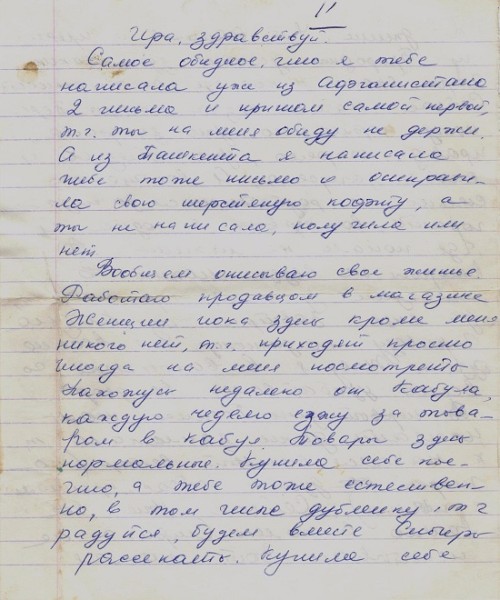 11
Ира, здравствуй.
Самое обидное, что я тебе
написала уже из Афганистана
2 письма и притом самой первой,
т.г. ты на меня обиду не держи.
А из Ташкента я написала
тебе тоже письмо и отправи-
ла свою шерстяную кофту, а
ты не написала, получила или
нет
Вообщем описываю свое житье.
Работаю продавцом в магазине
Женщин пока здесь кроме меня
никого нет, т.г. приходят просто
иногда на меня посмотреть.
Нахожусь недалеко от Кабула,
каждую неделю езжу за това-
ром в Кабул. Товары здесь
нормальные. Купила себе кое-
что, а тебе тоже естествен-
но, в том числе дубленку, т г
радуйся, будем вместе Сибирь
рассекать. Купила себе